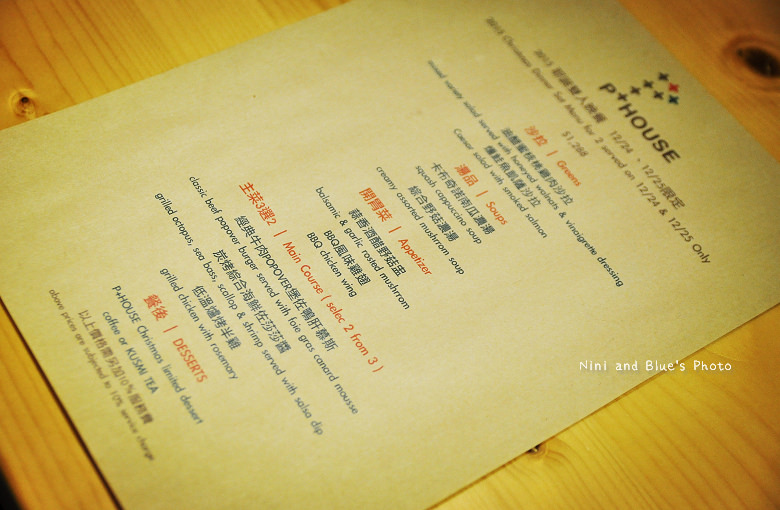 P+HOUSE
2013 耶誕雙人晚餐 12/24、12/25限定
2013 Christmas Dinner Set Menu for 2 served on 12/24 & 12/25 Only
$1,288
沙拉 | Greens
油醋蜜核桃雞肉沙拉
mixed variety salad served with honeyed walnuts & vinaigrette dressing
燻鮭魚凱薩沙拉
Caesar salad with smoked salmon
湯品 | Soups
卡布奇諾南瓜濃湯
squash cappuccino soup
綜合野菇濃湯
creamy assorted mushrrom soup
開胃菜 | Appetizer
蒜香酒醋野菇盅
balsamic & garlic rosted mushrrom
BBQ風味雞翅
BBQ chicken wing
主菜3選2 | Main Course ( selec 2 from 3 )
經典牛肉POPOVER堡佐鴨肝慕斯
classic beef popover burger served with foie gras canard mousse
炭烤綜合海鮮佐莎莎醬
grilled octopus, sea bass, scallop & shrimp served with salsa dip
低溫爐烤半雞
grilled chicken with rosemary
餐後 | DESSERTS
P+HOUSE Christmas limited dessert
coffee or KUSMI TEA
以上價格需另加10%服務費
above prices are subjected to 10% service charge
Nini and Blue's Photo